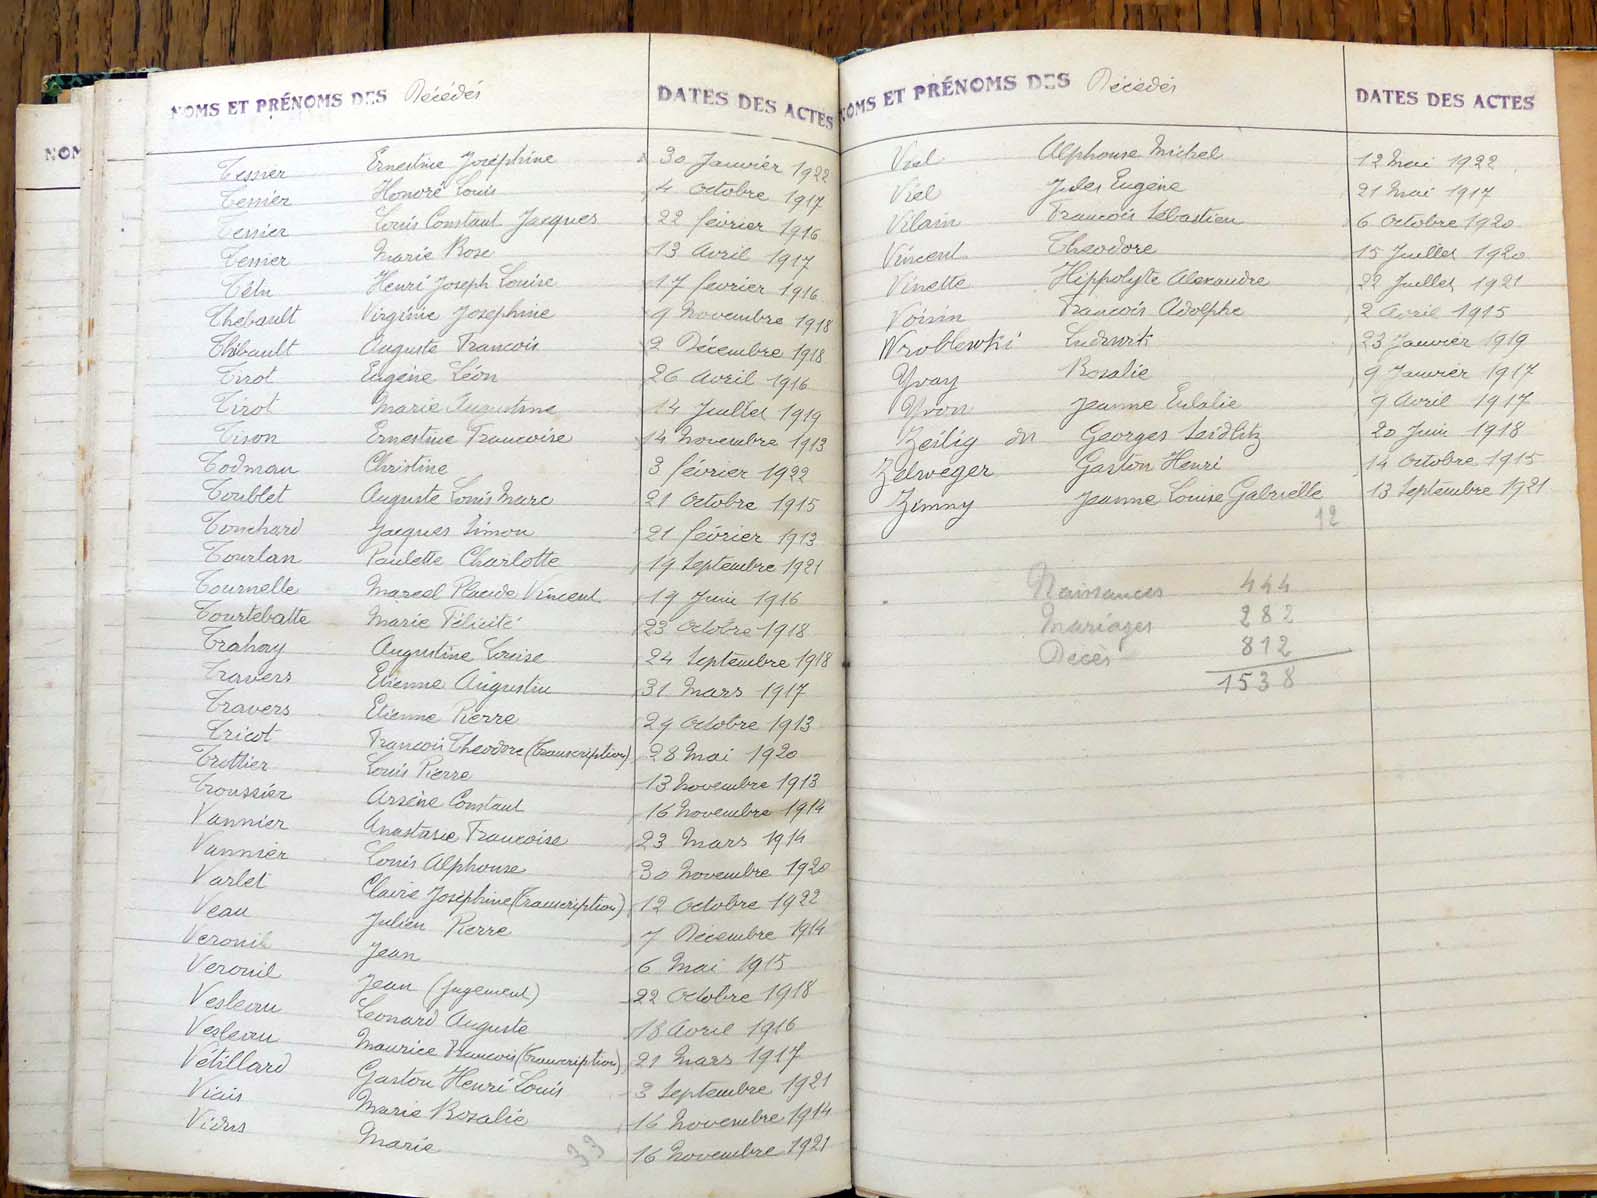 NOM
NOMS ET PRÉNOMS DES Décédés DATES DES ACTES
Tessier Ernestine Joséphine 30 Janvier 1922
Tessier Honoré Louis 4 Octobre 1917
Tessier Louis Constant Jacques 22 février 1916
Tessier Marie Rose 13 Avril 1917
Henri Joseph Louise 17 février 1916
Thebault Virginie Josephine 9 Novembre 1918
Thébault Auguste François 2 Décembre 1918
Tirot Eugène Léon 26 Avril 1916
Tirot Marie Augustine 14 Juillet 1919
Tison Ernestine Françoise 14 Novembre 1913
Todman Christine 3 février 1922
Toublet Auguste Louis Marc 21 Octobre 1915
Touchard Jacques Simon 21 février 1913
Tourlan Paulette Charlotte 19 Septembre 1921
Tournelle Marcel Placide Vincent 19 Juin 1916
Tourtebatte Marie Félicité 23 Octobre 1918
Trahay Augustine Louise 24 Septembre 1918
Travers Etienne Augustin 31 Mars 1917
Travers Etienne Pierre 29 Octobre 1913
Tricot François Théodore (Transcription) 28 Mai 1920
Trottier Louis Pierre 13 Novembre 1913
Troussier Arsène Constant 16 Novembre 1914
Vannier Anastasie Françoise 23 Mars 1914
Vannier Louis Alphonse 30 Novembre 1920
Varlet Claire Joséphine (Transcription) 12 Octobre 1922
Veau Julien Pierre 7 Décembre 1914
Verouil Jean 6 Mai 1915
Verouil Jean (Jugement) 22 Octobre 1918
Vesleau Leonard Auguste 18 Avril 1916
Vesleau Maurice François (Transcription) 21 Mars 1917
Vétillard Gaston Henri Louis 3 Septembre 1921
Viais Marie Rosalie 16 Novembre 1914
Marie 16 Novembre 1921
33
NOMS ET PRÉNOMS DES Décédés DATES DES ACTES
Viel Alphonse Michel 12 Mai 1922
Viel Jules Eugène 21 Mai 1917
Vilain François Sébastien 6 Octobre 1920
Vincent Théodore 15 Juillet 1920
Vinette Hippolyte Alexandre 22 Juillet 1921
Voisin François Adolphe 2 Avril 1915
Wroblewki Ludwik 23 Janvier 1919
Yvay Rosalie 9 Janvier 1917
Yvon Jeanne Eulalie 9 Avril 1917
Zeilig Georges Seidlitz 20 Juin 1918
Zelweger Gaston Henri 14 Octobre 1915
Zimny Jeanne Louise Gabrielle 13 Septembre 1921
12
Naissances 444
Mariages 282
Décès 812
1538